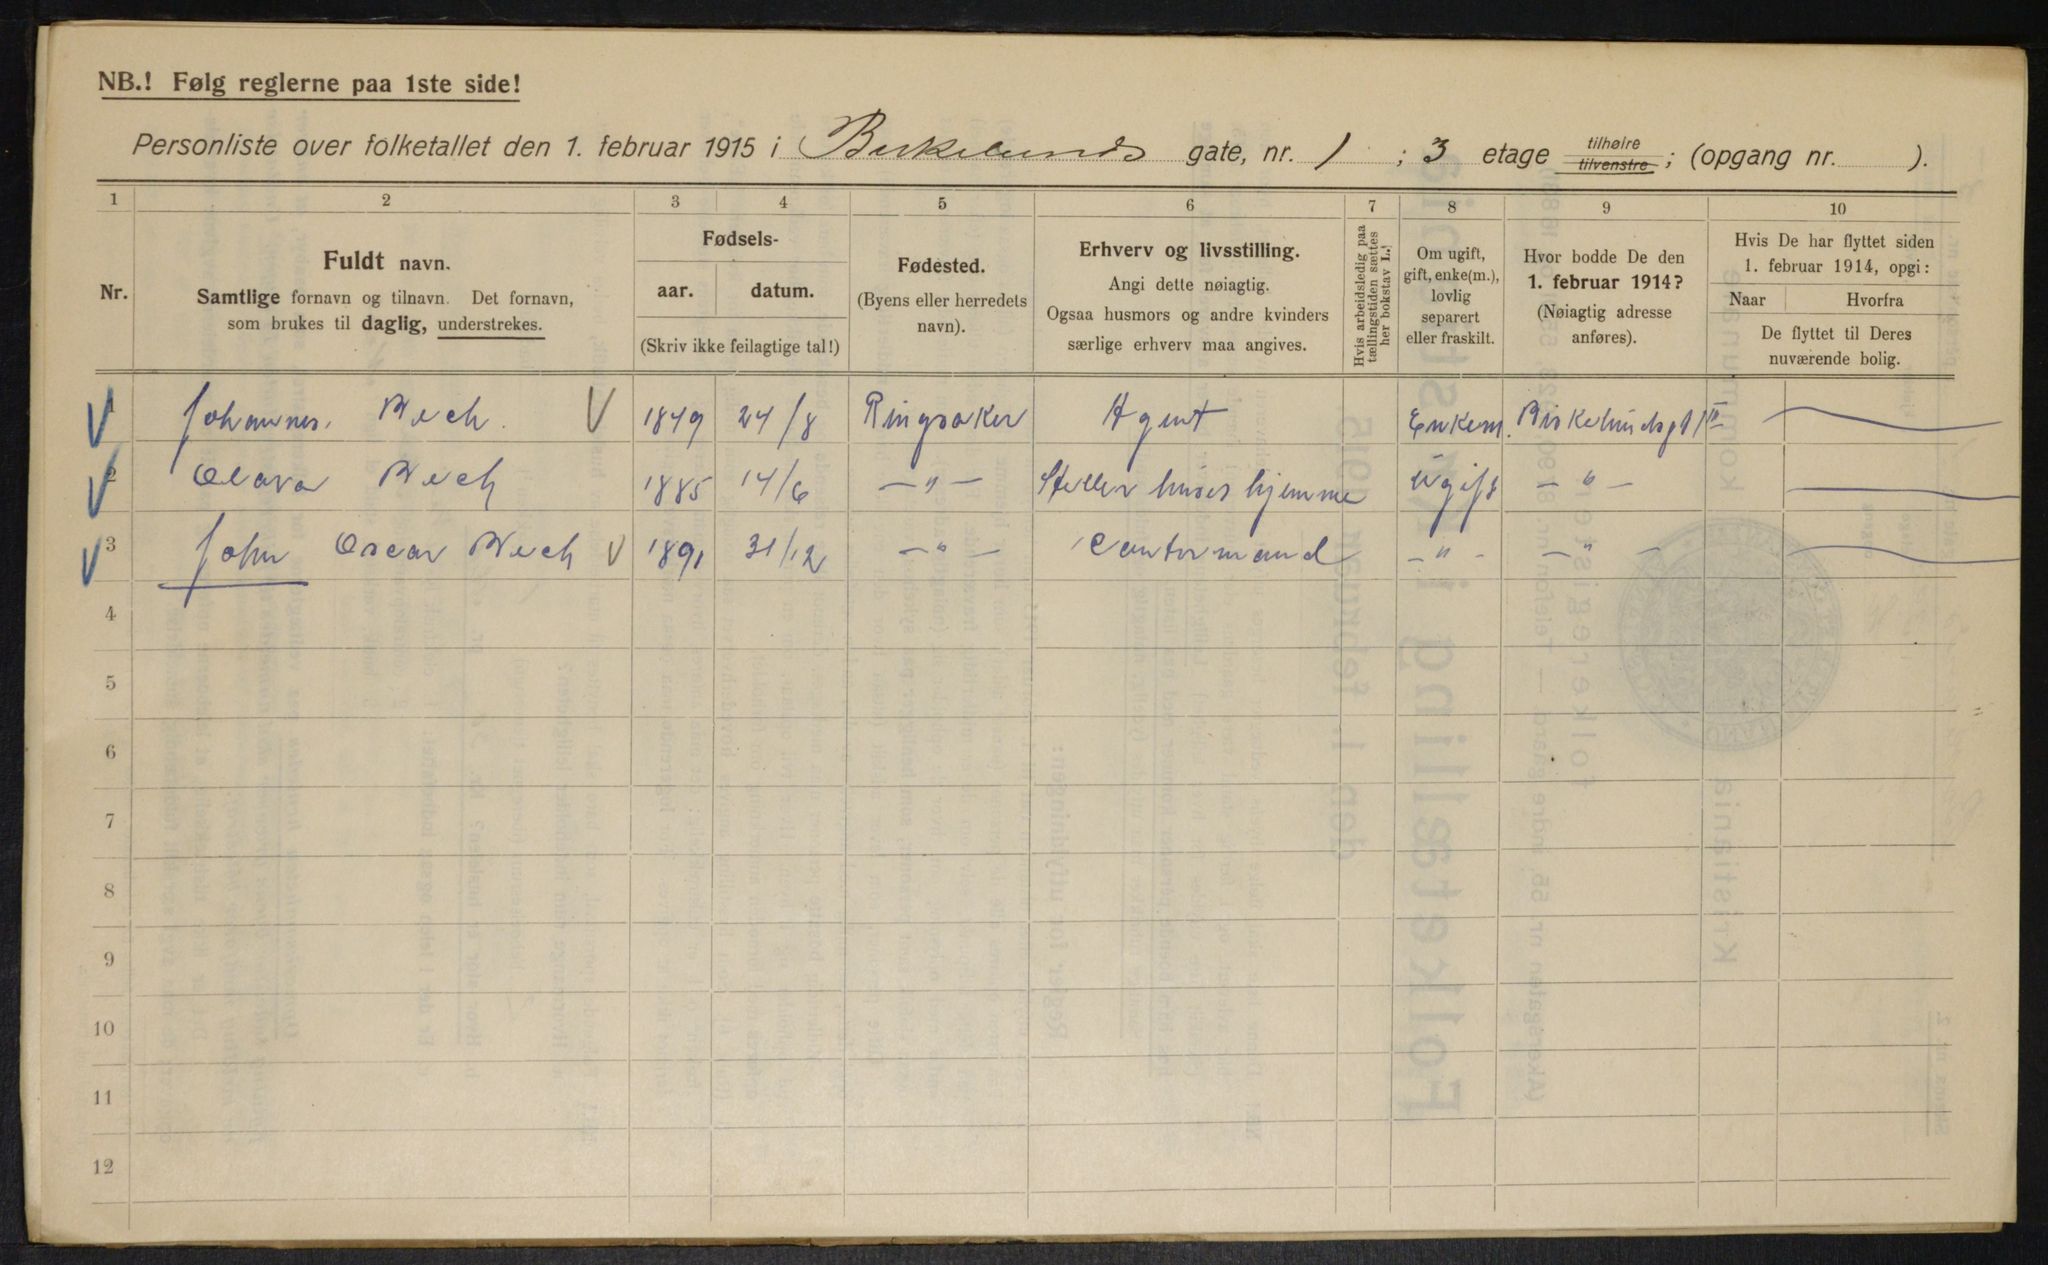 NB.! Følg reglerne paa 1ste side!
Personliste over folketallet den 1. februar 1915 i Birkelunds gate, nr. 1 ; 3 etage tilhølre tilvenstre ; (opgang nr. ).
1 2 3 4 5 6 7 8 9 10
Nr.
Fuldt navn.
Samtlige fornavn og tilnavn. Det fornavn,
som brukes til daglig, understrekes.
Fødsels-
aar. datum.
(Skriv ikke feilagtige tal!)
Fødested.
(Byens eller herredets
navn).
Erhverv og livsstilling.
Angi dette nøiagtig.
Ogsaa husmors og andre kvinders
særlige erhverv maa angives.
Hvis arbeidsledig paa
tællingstiden sættes
her bokstav L.!
Om ugift,
gift, enke(m.),
lovlig
separert
eller fraskilt.
Hvor bodde De den
1. februar 1914?
(Nøiagtig adresse
anføres).
Hvis De har flyttet siden
1. februar 1914, opgi:
Naar Hvorfra
De flyttet til Deres
nuværende bolig.
1 Johannes. Bech. V 1849 24/8 Ringsaker Agent Enkem. Birkelundsgt 1 III —
2 Olava Bech 1885 14/6 — " — Steller huset hjemme Ugift — " — —
3 John Oscar Bech V 1891 31/12 — " — Contormand — " — — " — —
4
5
6
7
8
9
10
11
12